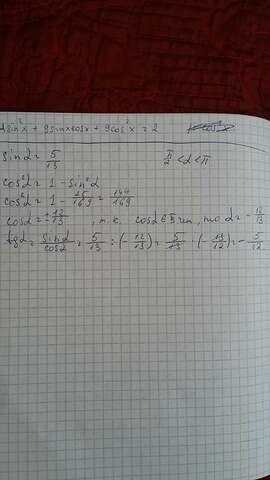 4sin²x + 9sinxcosx + 9cos²x = 2
sinα = 5/13 π/2 < α < π
cos²α = 1 - sin²α
cos²α = 1 - 25/169 = 144/169
cosα = ± 12/13, т.к. cosα ∈ II чет, то α = - 12/13
tgα = sinα/cosα = 5/13 : (- 12/13) = 5/13 · (- 13/12) = - 5/12